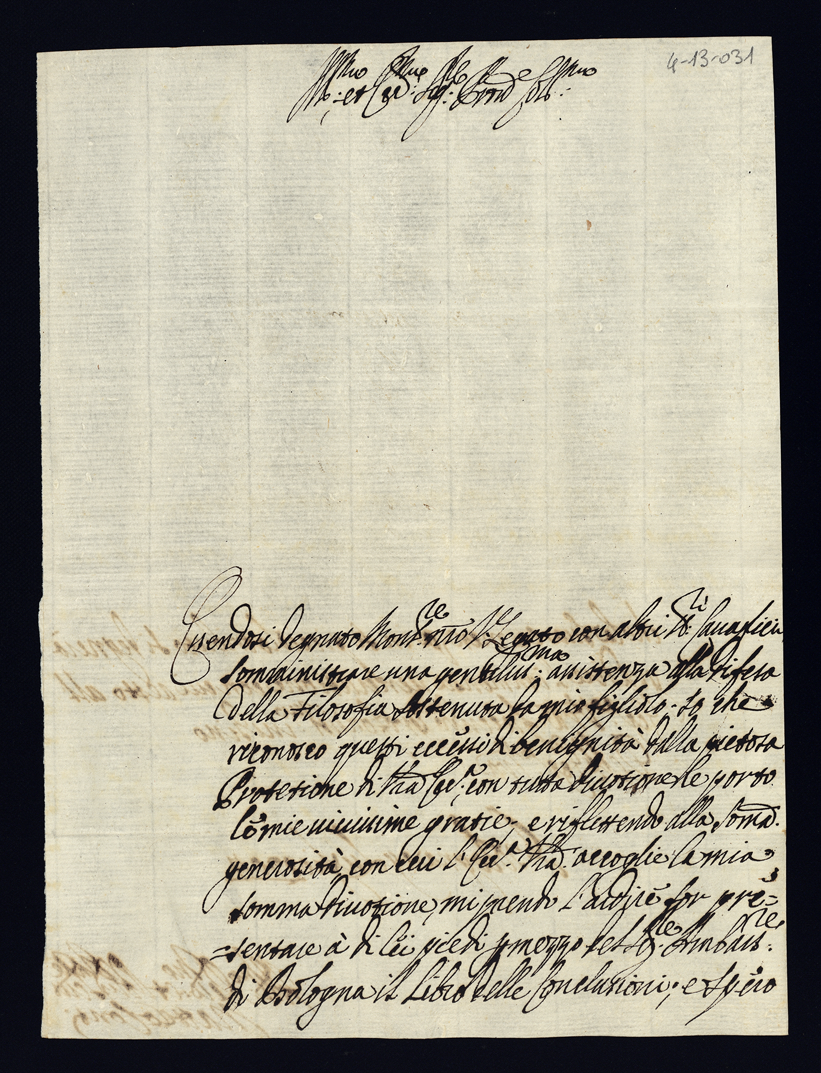 4-13-031
Ill.mo et Ecc.mo Sig.re Prnd Col.mo
Essendosi degnato Mons.re mio V. Legato con altri S.ri
somministrare una gentiliss.ma assistenza alla difesa
della Filosofia sostenuta da mio figliolo. Io che
riconosco questi eccessi di benignità dalla pietosa
Protetione di V'ra Ecc.a, con tutta divotione le porto
le mie vivissime gratie, e riflettendo alla somã
generosità con cui l'Ecc.a V'ra accoglie la mia
somma divotione, mi prendo l'ardire far pre=
=sentare à di lei piedi p mezzo del Sig.re Ambas.re
di Bologna il Libro delle Conclusioni; e spero